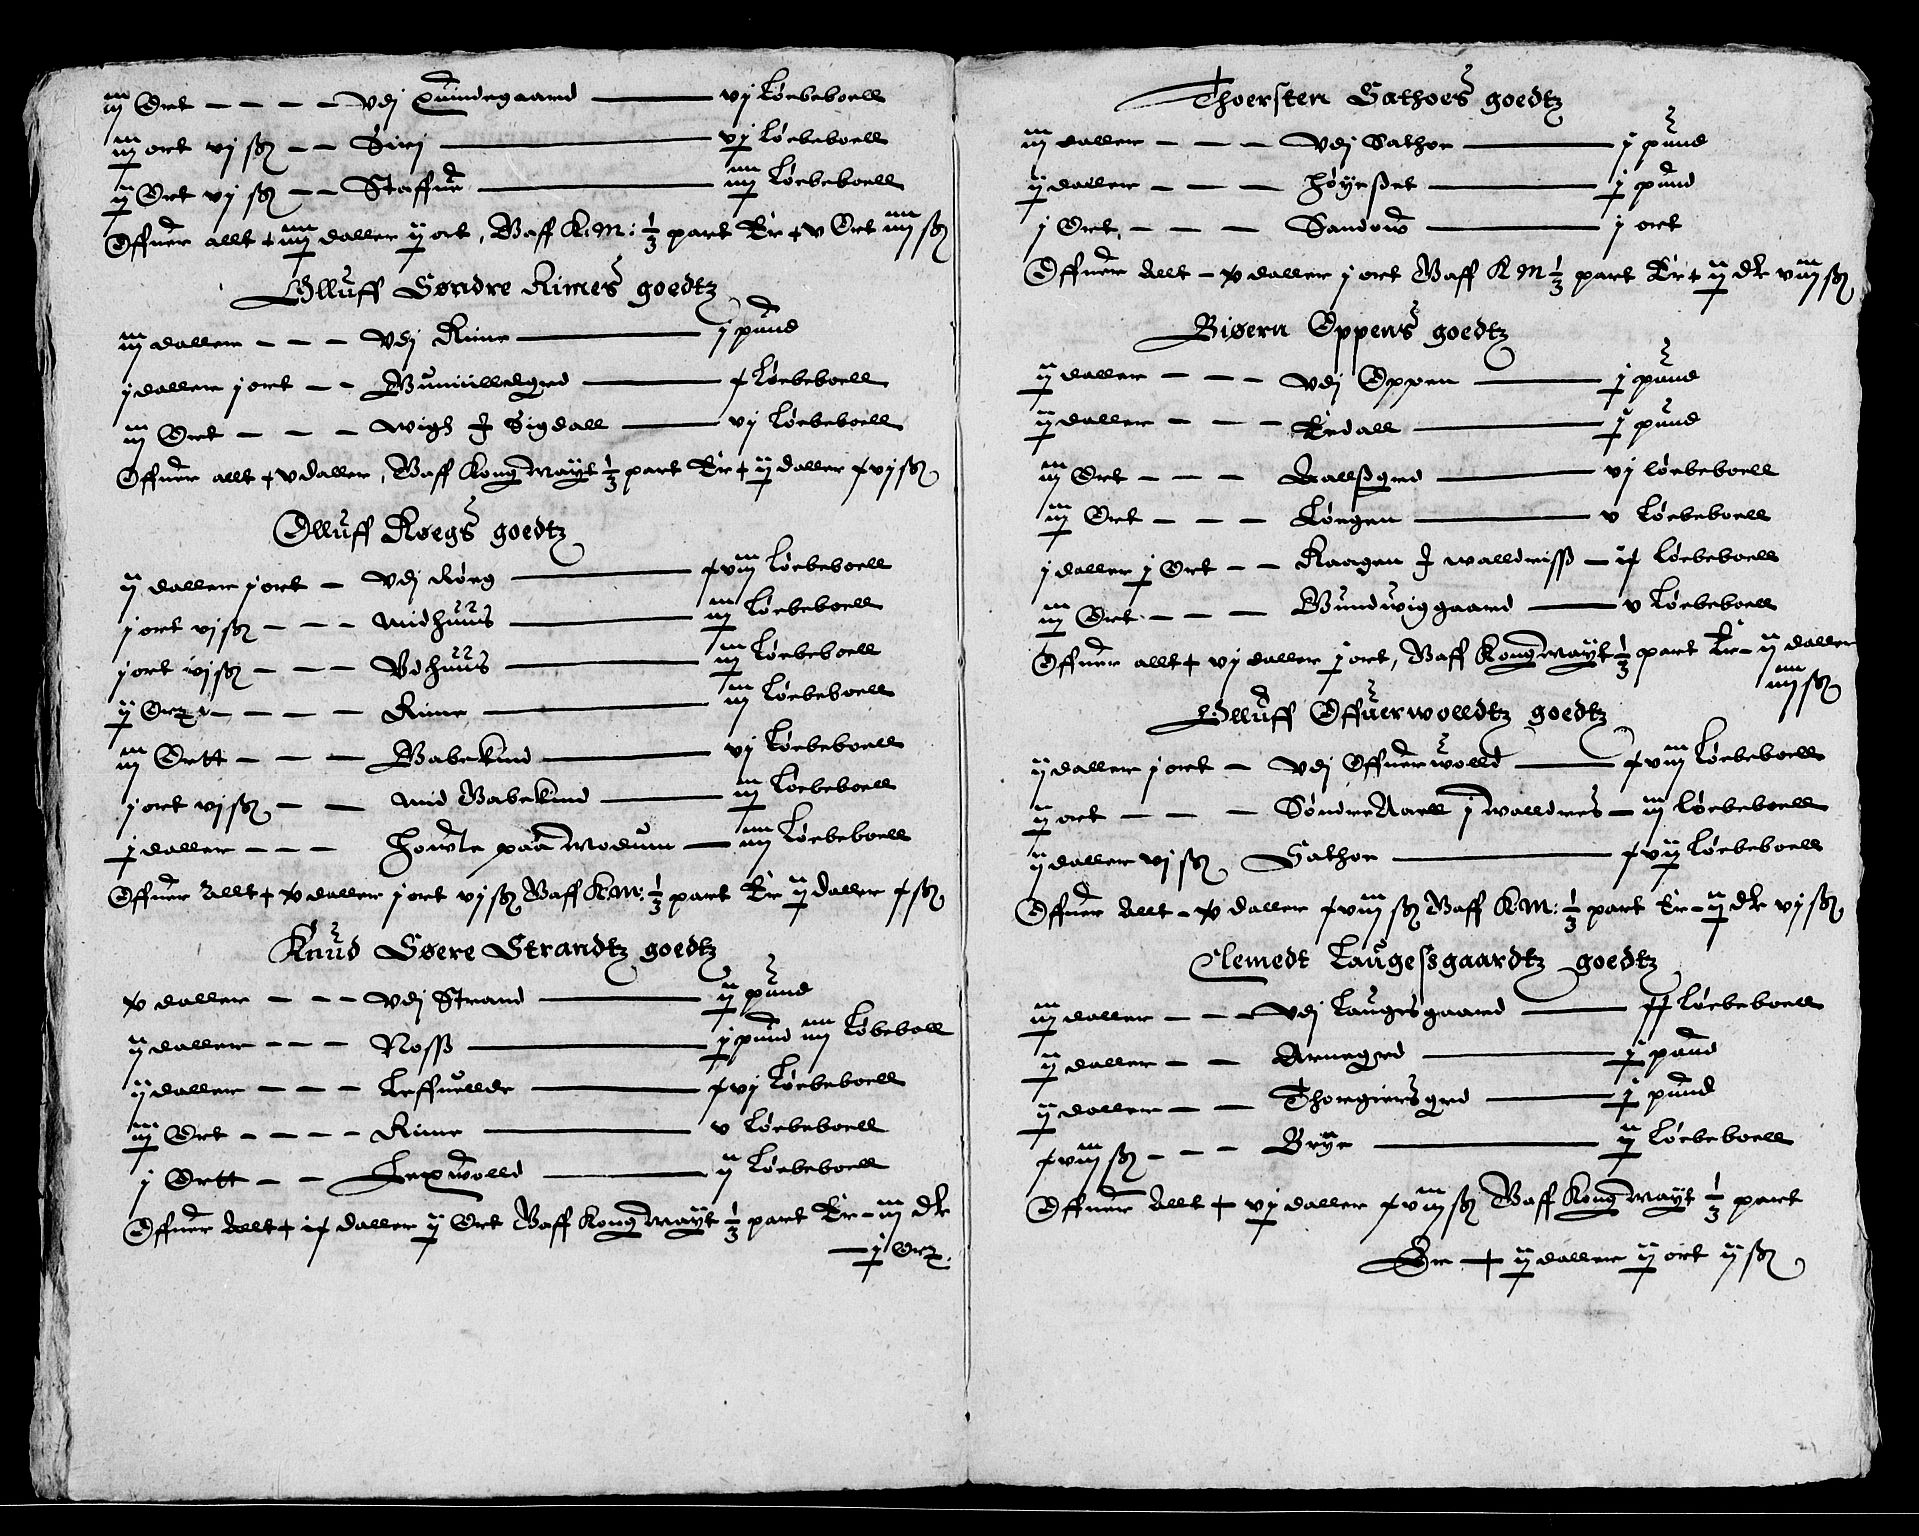 iij Ort – – – – Vdj Quindegaard —— vj Løebeboell
iij ort vj ß – – Sirj —— vj Løebeboell
ij Ort vj ß – – Staffue —— iiij Løebeboell
Offuer allt + iiij daller ij ort, Baff K.M: 1/3 part Er + v Ort iiij ß
Olluff Søndre Rimes goedtz
iij daller – – – Vdj Rime —— j pund
j daller j ort – – —— x Løebeboell
iij Ort – – – wigh J Sigdall —— vj Løebeboell
Offuer allt + v daller, Baff Kong Mayt 1/3 part Er + ij daller xvj ß
Olluff Røegs goedtz
ij daller j ort – Vdj Røeg —— xviij Løebeboell
j ort vj ß – – – midhuus —— iij Løebeboell
j ort vj ß – – – Vdhuus —— iij Løebeboell
ij Ort – – – – Rime —— iij Løebeboell
iij Ortt – – – Babekind —— vj Løebeboell
j ort vj ß – – mid Babekind —— iij Løebeboell
j daller – – – Howle paa Modum — iiij Løebeboell
Offuer Allt + x daller j ort vj ß Baff K.M: 1/3 part Er ij daller x ß
Knud Søere Strandtz goedtz
x daller – – – Vdj Strand —— ij pund
ij daller – – – Noss —— j pund iiij Løbeboll
ij daller – – – Leffuelldr —— xvj Løebeboell
iij Ort – – – – Rime —— v Løebeboell
j Ortt – – Lexwolld —— ij Løebeboell
Offuer Allt + ix daller ij Ort Baff Kong Mayt 1/3 part Er – iij dlr
– j Ort
Thoersten Sathoes goedtz
iij daller – – – Vdj Sathoe —— j pund
ij daller – – – Høyesset —— j pund
j Ort, – – – Sandow —— j ort
Offuer Allt – x daller j ort Baff K M 1/3 part Er + ij dlr viij ß
Biøern Oppens goedtz
ij daller – – – Vdj Oppen —— j pund
ij daller – – – Erdall —— j pund
iij Ort – – – Aallssgrd —— vj løebeboell
iij Ort – – – Løegen —— v Løebeboell
j daller j Ort – – Raagen J walldriss – ix Løebeboell
iij Ort – – – Bundwiggaard —— v Løebeboell
Offuer allt + vj daller j ort, Baff Kong Mayt 1/3 part Er – ij daller
iiij ß
Olluff Offuerwolldtz goedtz
ij daller j ort – Vdj Offuerwolld —— xviij Løebeboell
ij ort – – – Søndre Aaell J walldres – iij løebeboell
ij daller vj ß Sathoe —— xvij Løebeboell
Offuer Allt – x daller xviij ß Baff K.M: 1/3 part Er – ij dlr vj ß
Clemedt Laugessgaardtz goedtz
iij daller – – – Vdj Laugesgaard —— xx Løebeboell
ij daller – – Arnegrd —— j pund
ij daller – – Thorgiersgrd —— j pund
xviij ß – – – Brye —— ij Løebeboell
Offuer Allt + vj daller xviij ß Baff Kong Mayt 1/3 part
Er + ij daller ij ort ij ß